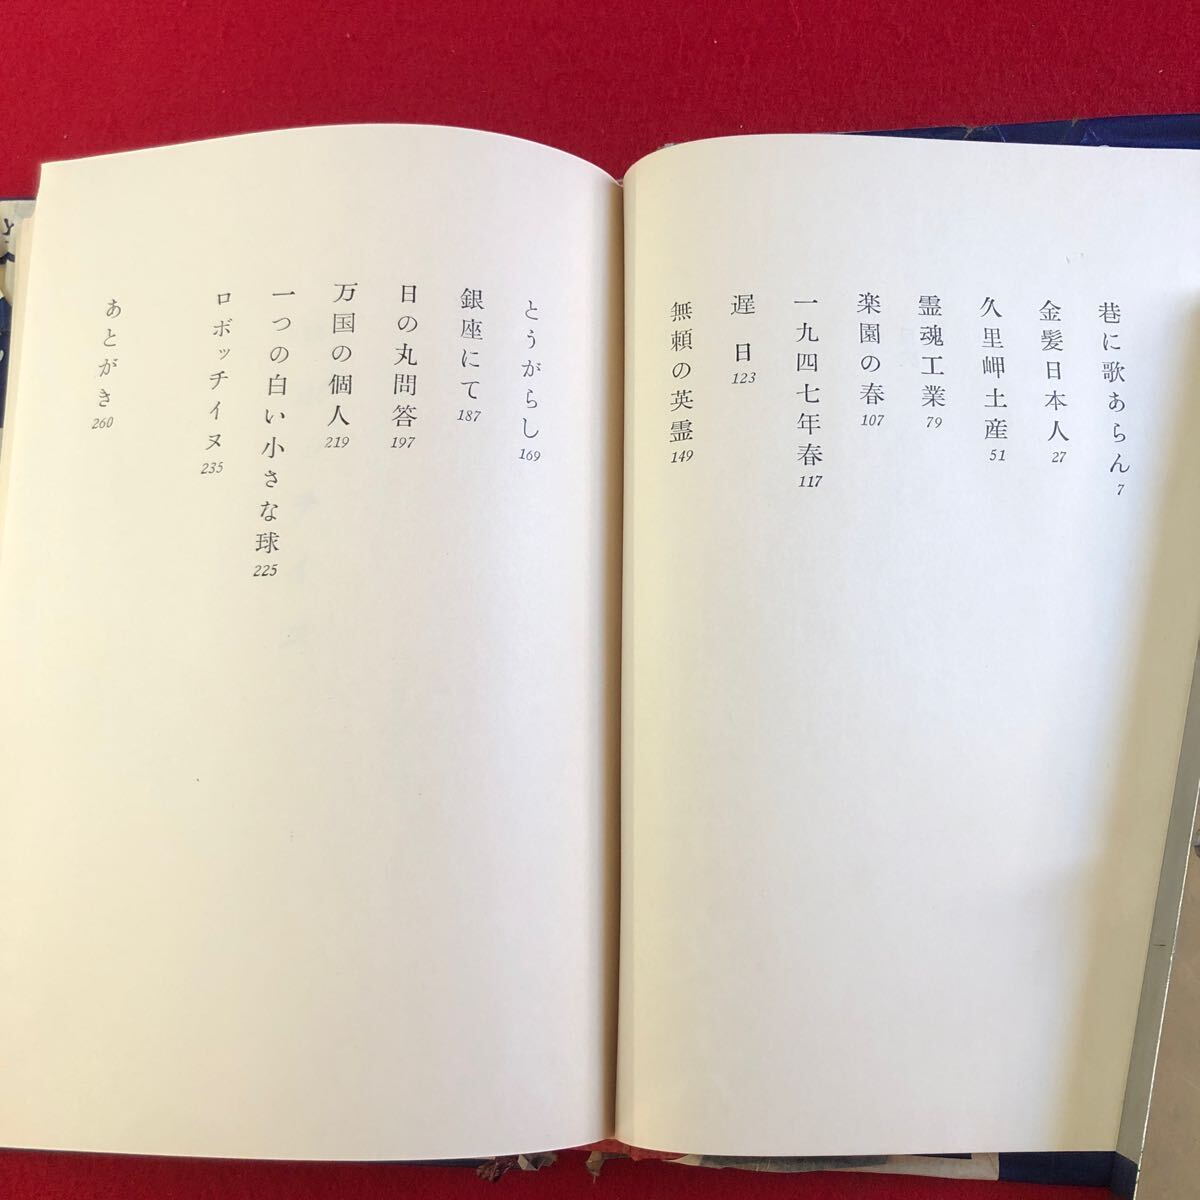 巷に歌あらん 7
金髪日本人 27
久里岬土産 51
霊魂工業 79
楽園の春 107
一九四七年春 117
遅日 123
無頼の英霊 149
とうがらし 169
銀座にて 187
日の丸問答 197
万国の個人 219
一つの白い小さな球 225
ロボッチイヌ 235
あとがき 260